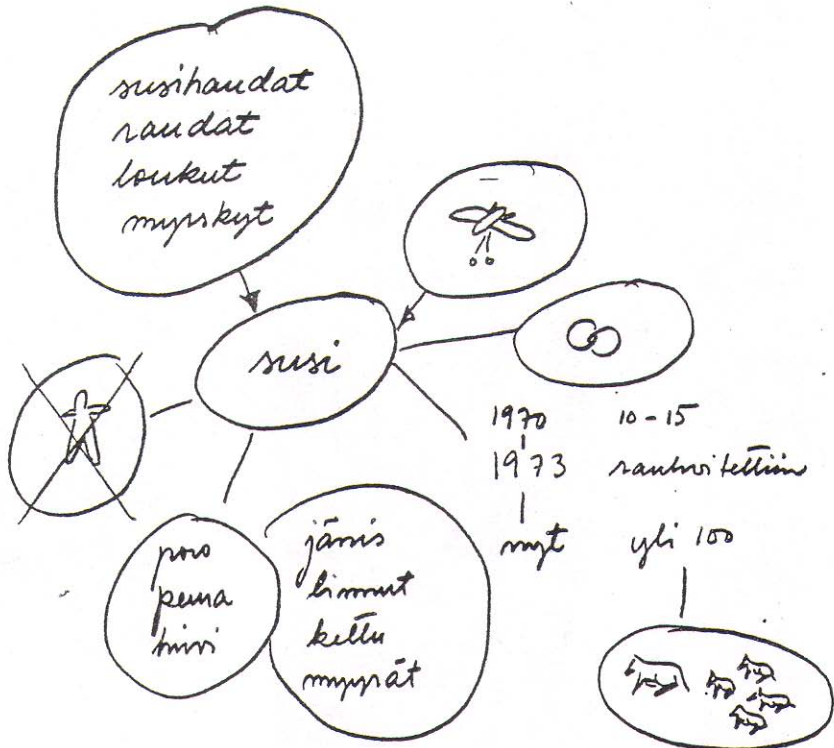 susihaudat
raudat
loukut
myrskyt
susi
1970 10-15
1973 rauhoitettiin
nyt yli 100
poro
peura
hirvi
jänis
linnut
kettu
myyrät